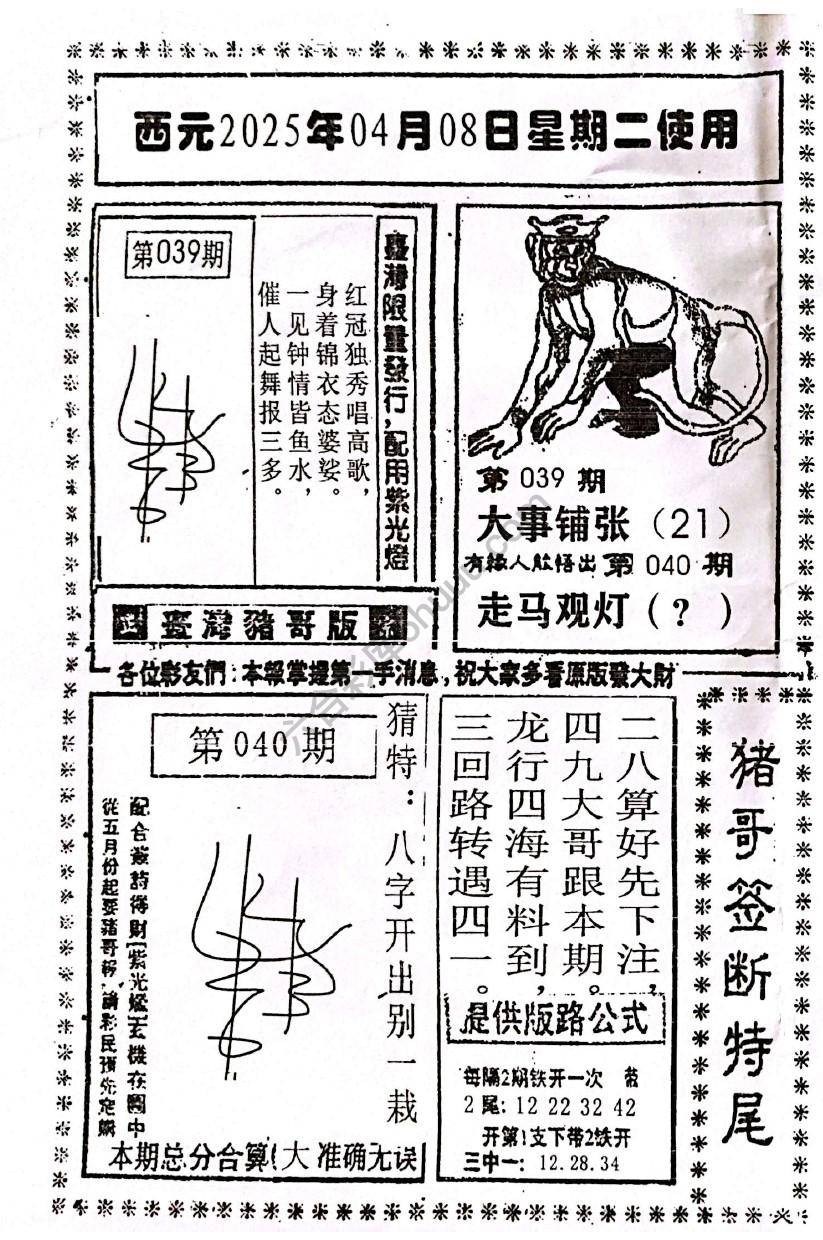 西元2025年04月08日星期二使用
第039期
臺灣限量發行,配用紫光燈
红冠独秀唱高歌，
身着锦衣态婆娑。
一见钟情皆鱼水，
催人起舞报三多。
第039期
大事铺张（21）
有緣人能悟出第040期
走马观灯（？）
臺灣豬哥版
各位彩友們:本報掌握第一手消息,祝大家多看原版發大財
第040期
猜特：八字开出别一栽
配合簽詩得財(紫光燈)玄機在圖中
從五月份起要豬哥報,請彩民預先定購
本期总分合算(大 准确无误
二八算好先下注，
四九大哥跟本期。
龙行四海有料到，
三回路转遇四一。
提供版路公式
每隔2期铁开一次 带
2尾:12 22 32 42
开第1支下带2铁开
三中一:12.28.34
猪哥签断特尾
六合彩库
.com